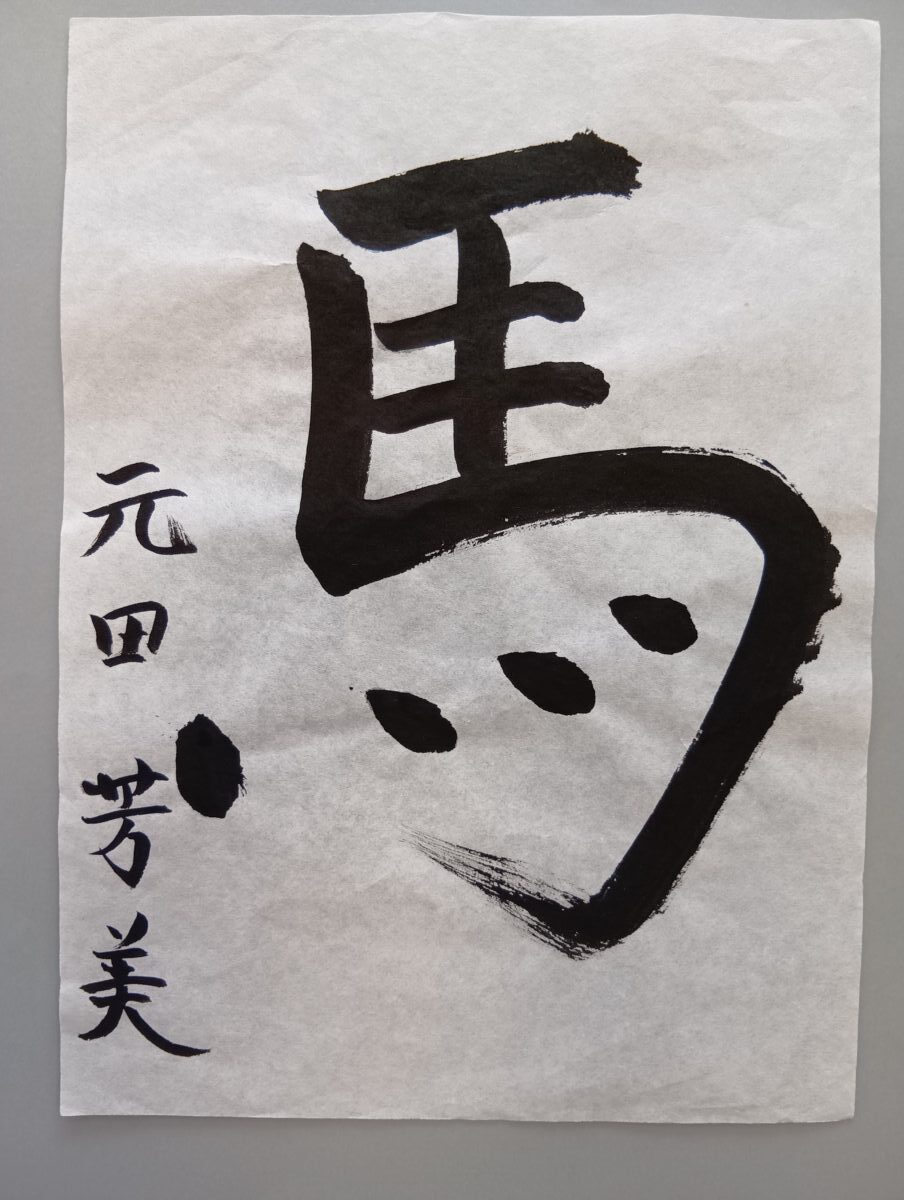 馬
元田芳美